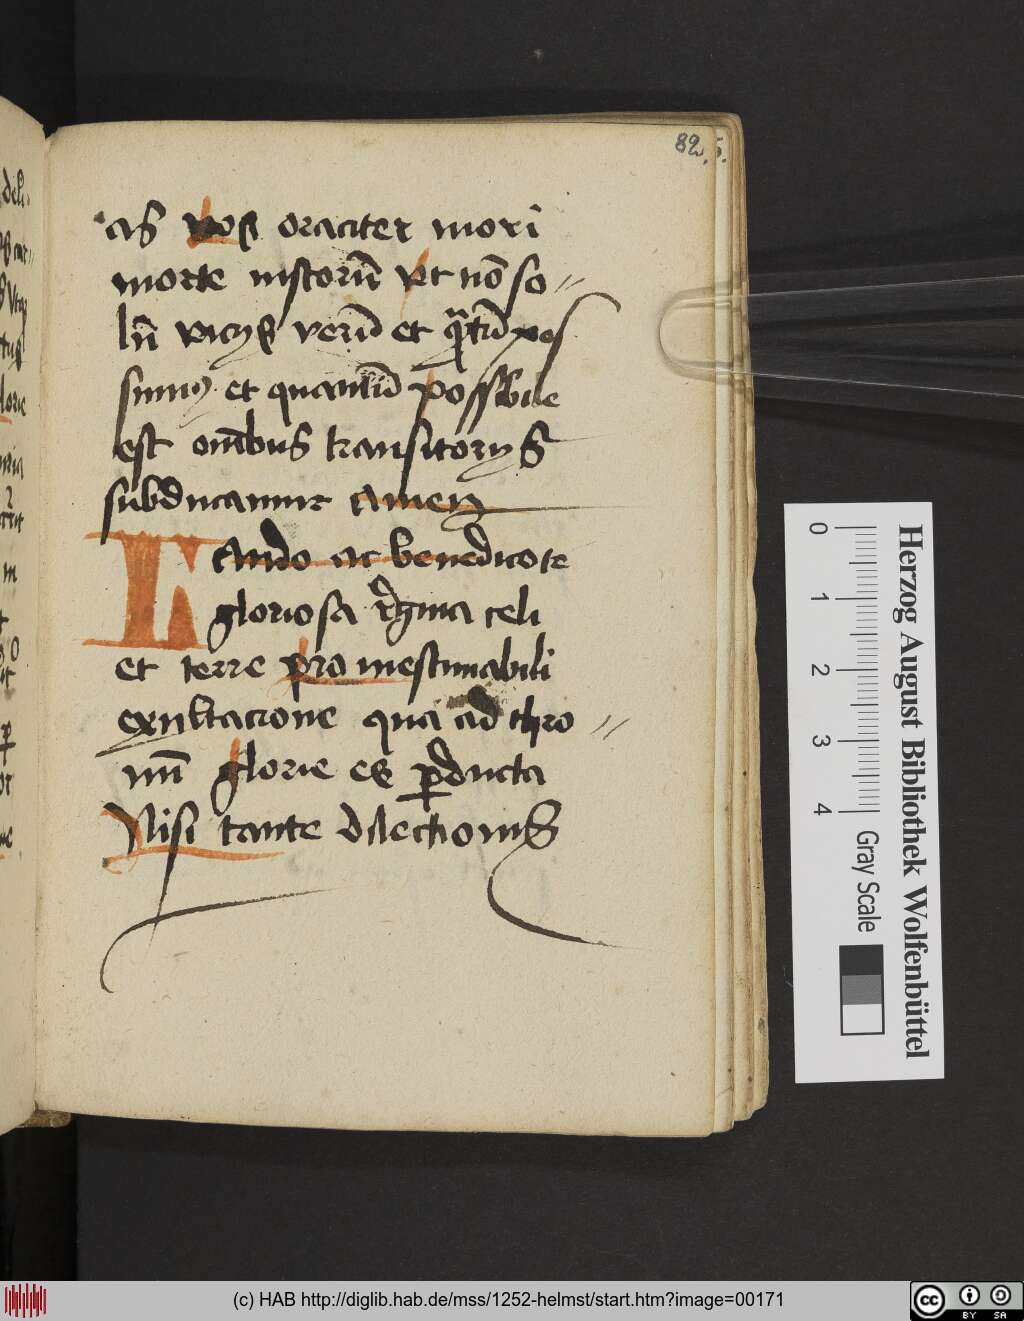 82.
as vos oraciter mori
morte iustorū vt nō so
lū vicijs verū et q̄tū pos
sumus et quantū possibile
est om̄ibus transitorijs
subducamur Amen
LAudo ac benedico te
gloriosa regina celi
et terre pro inestimabili
exultacione qua ad thro
num glorie es perducta
Nisi tante dilectionis
0 1 2 3 4
Gray Scale
Herzog August Bibliothek Wolfenbüttel
(c) HAB http://diglib.hab.de/mss/1252-helmst/start.htm?image=00171
cc BY SA